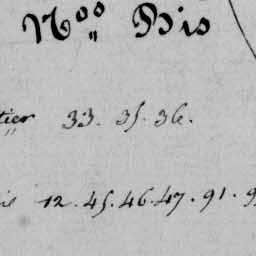 Nos Bis
tier 33. 35. 36.
12. 45. 46. 47. 91. 9